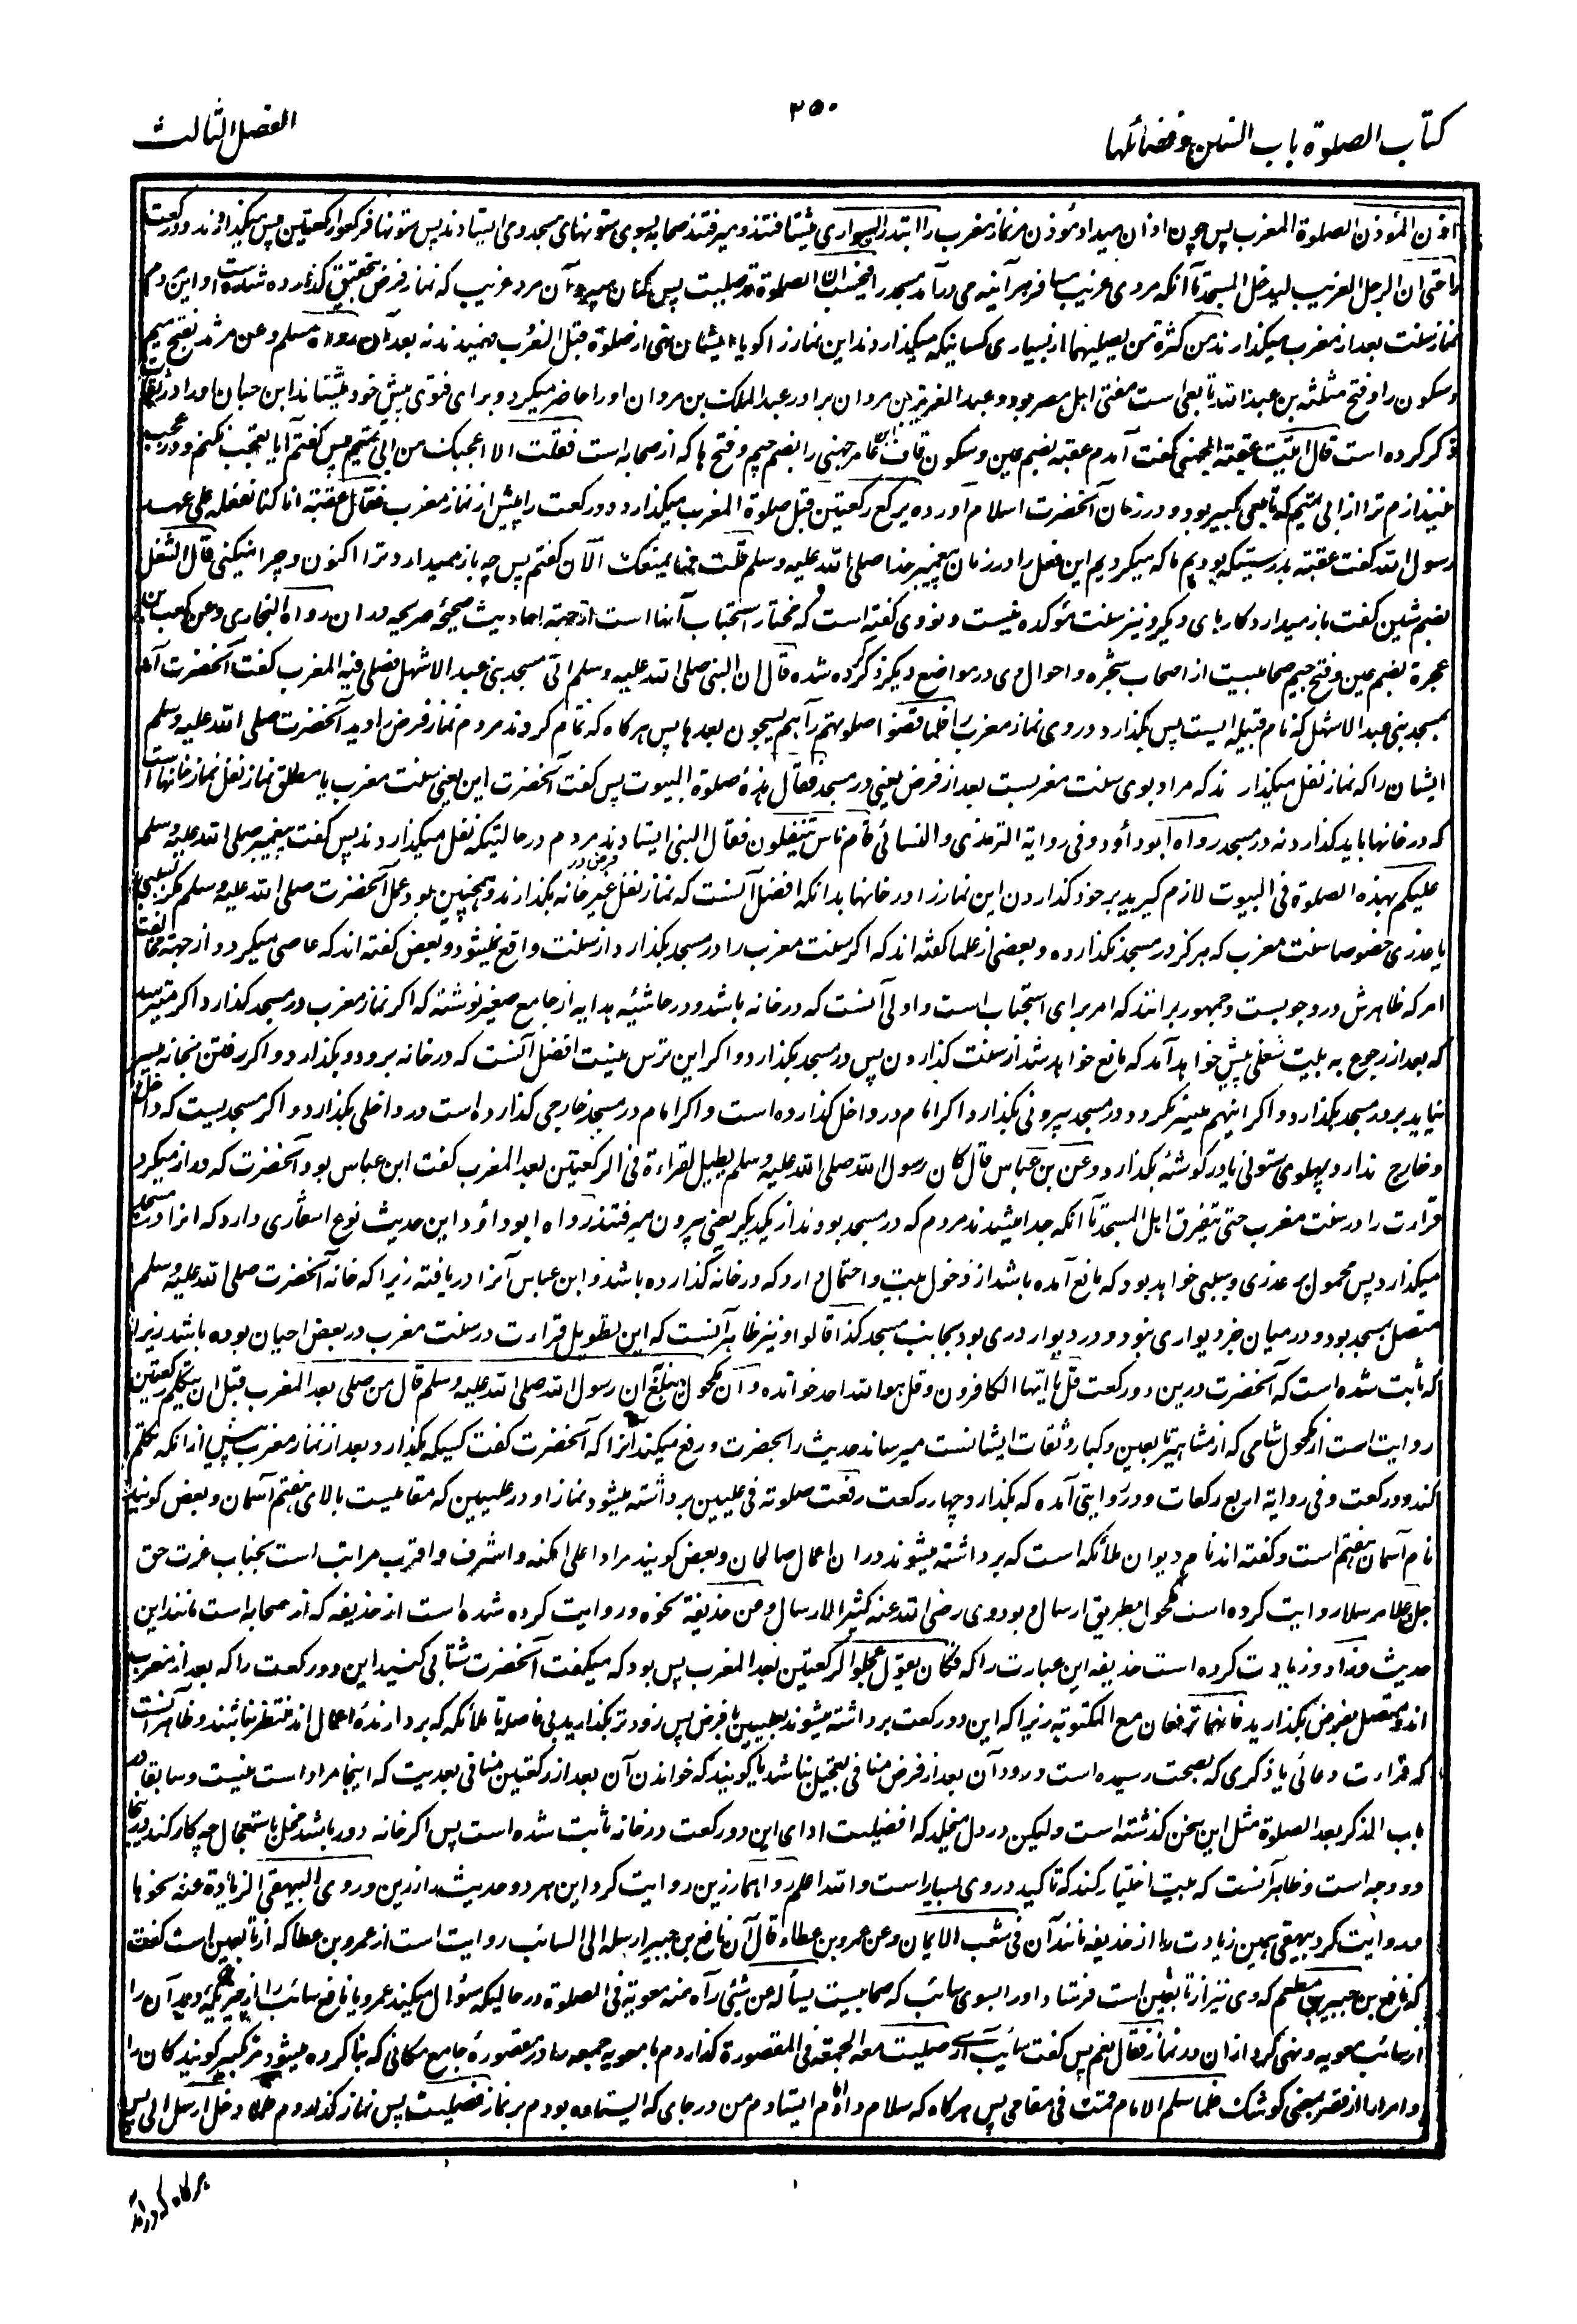 كتاب الصلوة باب السنن وفضائلها
۳۵۰
الفصل الثالث
اذن المؤذن لصلوة المغرب پس چون اذان میداد مؤذن مر نماز مغرب را ابتدروا السواری میشتافتند و میرفتند صحابه بسوی ستونهای مسجد و می ایستادند پس ستونها فرکعوا رکعتین پس میگذاردند دو رکعت
را حتی ان الرجل الغریب لیدخل المسجد تا آنکه مردی غریب مسافر هر آئینه می درآمد مسجد را فیحسب ان الصلوة قد صلیت پس گمان میبرد آن مرد غریب که نماز فرض بتحقیق گذارده شده است و این مردم
نماز سنت بعد از مغرب میگذارند من کثرة من یصلیهما از بسیاری کسانیکه میگذاردند این نماز را گویا ایشان نهی از صلوة قبل المغرب نفهمیدند نه بعد آن رواه مسلم وعن مرثد بفتح میم
وسکون را و فتح مثلثه بن عبد الله تابعی است مفتی اهل مصر بود و عبد العزیز بن مروان برادر عبد الملک بن مروان او را حاضر میکرد و برای فتوی پیش خود مینشاند ابن حبان او را در ثقات
ذکر کرده است قال اتیت عقبة الجهنی گفت آمدم عقبه بضم عین و سکون قاف بن عامر جهنی را بضم جیم و فتح ها که از صحابه است فقلت الا اعجبک من ابی تمیم پس گفتم آیا بتعجب نکنم و در عجب
نیندازم ترا از ابی تمیم که تابعی کبیر بود و در زمان آنحضرت اسلام آورده یرکع رکعتین قبل صلوة المغرب میگذارد دو رکعت را پیش از نماز مغرب فقال عقبة انا کنا نفعله علی عهد
رسول الله گفت عقبه بدرستیکه بودیم ما که میکردیم این فعل را در زمان پیغمبر خدا صلی الله علیه وسلم قلت فما یمنعک الآن گفتم پس چه باز میدارد ترا اکنون و چرا نمیکنی قال الشغل
بضم شین گفت باز میدارد کارهای دیگر و نیز سنت مؤکده نیست و نووی گفته است که مختار استحباب آنها است از جهة احادیث صحیحه صریحه در ان رواه البخاری وعن کعب بن
عجرة بضم عین و فتح جیم صحابیست از اصحاب شجره و احوال وی در مواضع دیگر ذکر کرده شده قال ان النبی صلی الله علیه وسلم اتی مسجد بنی عبد الاشهل فصلی فیه المغرب گفت آنحضرت آمد
بمسجد بنی عبد الاشهل که نام قبیله ایست پس بگذارد در وی نماز مغرب را فلما قضوا صلوتهم رآهم یسبحون بعدها پس هرگاه که تمام کردند مردم نماز فرض را دید آنحضرت صلی الله علیه وسلم
ایشان را که نماز نفل میگذارند که مراد بوی سنت مغربست بعد از فرض یعنی در مسجد فقال هذه صلوة البیوت پس گفت آنحضرت این یعنی سنت مغرب یا مطلق نماز نفل نماز خانها است
که در خانها باید گذارد نه در مسجد رواه ابوداود وفی روایة الترمذی والنسائی قام ناس یتنفلون فقال النبی ایستادند مردم در حالتیکه نفل میگذاردند پس گفت پیغمبر صلی الله علیه وسلم
علیکم بهذه الصلوة فی البیوت لازم گیرید بر خود گذاردن این نماز را در خانها بدانکه افضل آنست که نماز نفل غیر فرض در خانه بگذارند و همچنین بود عمل آنحضرت صلی الله علیه وسلم مگر بسببی
یا عذری خصوصا سنت مغرب که هرگز در مسجد نگذارده و بعضی از علما گفته اند که اگر سنت مغرب را در مسجد بگذارد از سنت واقع نمیشود و بعض گفته اند که عاصی میگردد از جهة مخالفت
امر که ظاهرش در وجوبست و جمهور برانند که امر برای استحباب است و اولی آنست که در خانه باشد و در حاشیه هدایه از جامع صغیر نوشته که اگر نماز مغرب در مسجد گذارد اگر میترسد
که بعد از رجوع به بیت شغلی پیش خواهد آمد که مانع خواهد شد از سنت گذاردن پس در مسجد بگذارد و اگر این ترس نیست افضل آنست که در خانه برود و بگذارد و اگر رفتن بخانه میسر
نیاید بر در مسجد بگذارد و اگر اینهم میسر نگردد در مسجد بیرونی بگذارد اگر امام در داخل گذارده است و اگر امام در مسجد خارجی گذارده است در داخلی بگذارد و اگر مسجدیست که داخل
و خارج ندارد پهلوی ستونی یا در گوشه بگذارد وعن بن عباس قال کان رسول الله صلی الله علیه وسلم یطیل القراءة فی الرکعتین بعد المغرب گفت ابن عباس بود آنحضرت که دراز میکرد
قراءت را در سنت مغرب حتی یتفرق اهل المسجد تا آنکه جدا میشدند مردم که در مسجد بودند از یکدیگر یعنی بیرون میرفتند رواه ابوداود این حدیث نوع اشعاری دارد که انرا در مسجد
میگذارد پس محمول بر عذری و سببی خواهد بود که مانع آمده باشد از دخول بیت و احتمال دارد که در خانه گذارده باشد و ابن عباس آنرا دریافته زیرا که خانه آنحضرت صلی الله علیه وسلم
متصل بمسجد بود و در میان جز دیواری نبود و در دیوار دری بود بجانب مسجد کذا قالوا و نیز ظاهر آنست که این تطویل قراءت در سنت مغرب در بعض احیان بوده باشد زیرا
که ثابت شده است که آنحضرت درین دو رکعت قل یا ایها الکافرون و قل هو الله احد خوانده وعن مکحول یبلغ به ان رسول الله صلی الله علیه وسلم قال من صلی بعد المغرب قبل ان یتکلم رکعتین
روایت است از مکحول شامی که از مشاهیر تابعین و کبار و ثقات ایشانست میرساند حدیث را بحضرت و رفع میکند آنرا که آنحضرت گفت کسیکه بگذارد بعد از نماز مغرب پیش از آنکه تکلم
کند دو رکعت وفی روایة اربع رکعات و در روایتی آمده که بگذارد چهار رکعت رفعت صلوته فی علیین برداشته میشود نماز او در علیین که مقامیست بالای هفتم آسمان و بعض گویند
نام آسمان هفتم است و گفته اند نام دیوان ملائکه است که برداشته میشوند دران اعمال صالحان و بعض گویند مراد اعلی امکنه و اشرف و اقرب مراتب است بجناب عزت حق
جل و علا مرسلا روایت کرده است مکحول بطریق ارسال و بود وی رضی الله عنه کثیر الارسال وعن حذیفة نحوه و روایت کرده شده است از حذیفه که از صحابه است مانند این
حدیث وزاد و زیادت کرده است حذیفه این عبارت را که فکان یقول عجلوا الرکعتین بعد المغرب پس بود که میگفت آنحضرت شتابی کنید این دو رکعت را که بعد از مغرب
اند و متصل بفرض بگذارید فانهما ترفعان مع المکتوبة زیرا که این دو رکعت برداشته میشوند بعلیین با فرض پس زودتر بگذارید بی فاصله تا ملائکه که بردارنده اعمال اند منتظر نباشند و ظاهر آنست
که قراءت دعائی یا ذکری که بصحت رسیده است ورود آن بعد از فرض منافی بتعجیل نباشد یا گویند که خواندن آن بعد از رکعتین منافی بعدیت که اینجا مراد است نیست و سابقا در
باب الذکر بعد الصلوة مثل این سخن گذشته است ولیکن در دل میخلد که افضلیت ادای این دو رکعت در خانه ثابت شده است پس اگر خانه دور باشد مخل باستعجال چه کار کند اینجا
دو وجه است و ظاهر آنست که بیت اختیار کند که تاکید در وی بسیار است والله اعلم رواهما رزین روایت کرد این هر دو حدیث را رزین وروی البیهقی الزیادة عنه نحوها
و روایت کرد بیهقی همین زیادت را از حذیفه مانند آن فی شعب الایمان وعن عمرو بن عطاء قال ان نافع بن جبیر ارسله الی السائب روایت است از عمرو بن عطا که از تابعین است گفت
که نافع بن جبیر بن مطعم که وی نیز از تابعین است فرستاد او را بسوی سائب که صحابیست یسأله عن شیء رآه منه معویة فی الصلوة در حالیکه سؤال میکند عمرو یا نافع سائب را از چیزیکه دید آن را
از سائب معویه و نهی کرد ازان در نماز فقال نعم پس گفت سائب آری صلیت معه الجمعة فی المقصورة گذاردم با معویه جمعه را در مقصوره جامع مکانی که بنا کرده میشود گویند کان را
و امرا را از قصر بمعنی کوشک فلما سلم الامام قمت فی مقامی پس هرگاه که سلام داد امام ایستادم من در جای که ایستاده بودم بر نماز فصلیت پس نماز گذاردم فلما دخل ارسل الی پس
هرگاه که درآمد